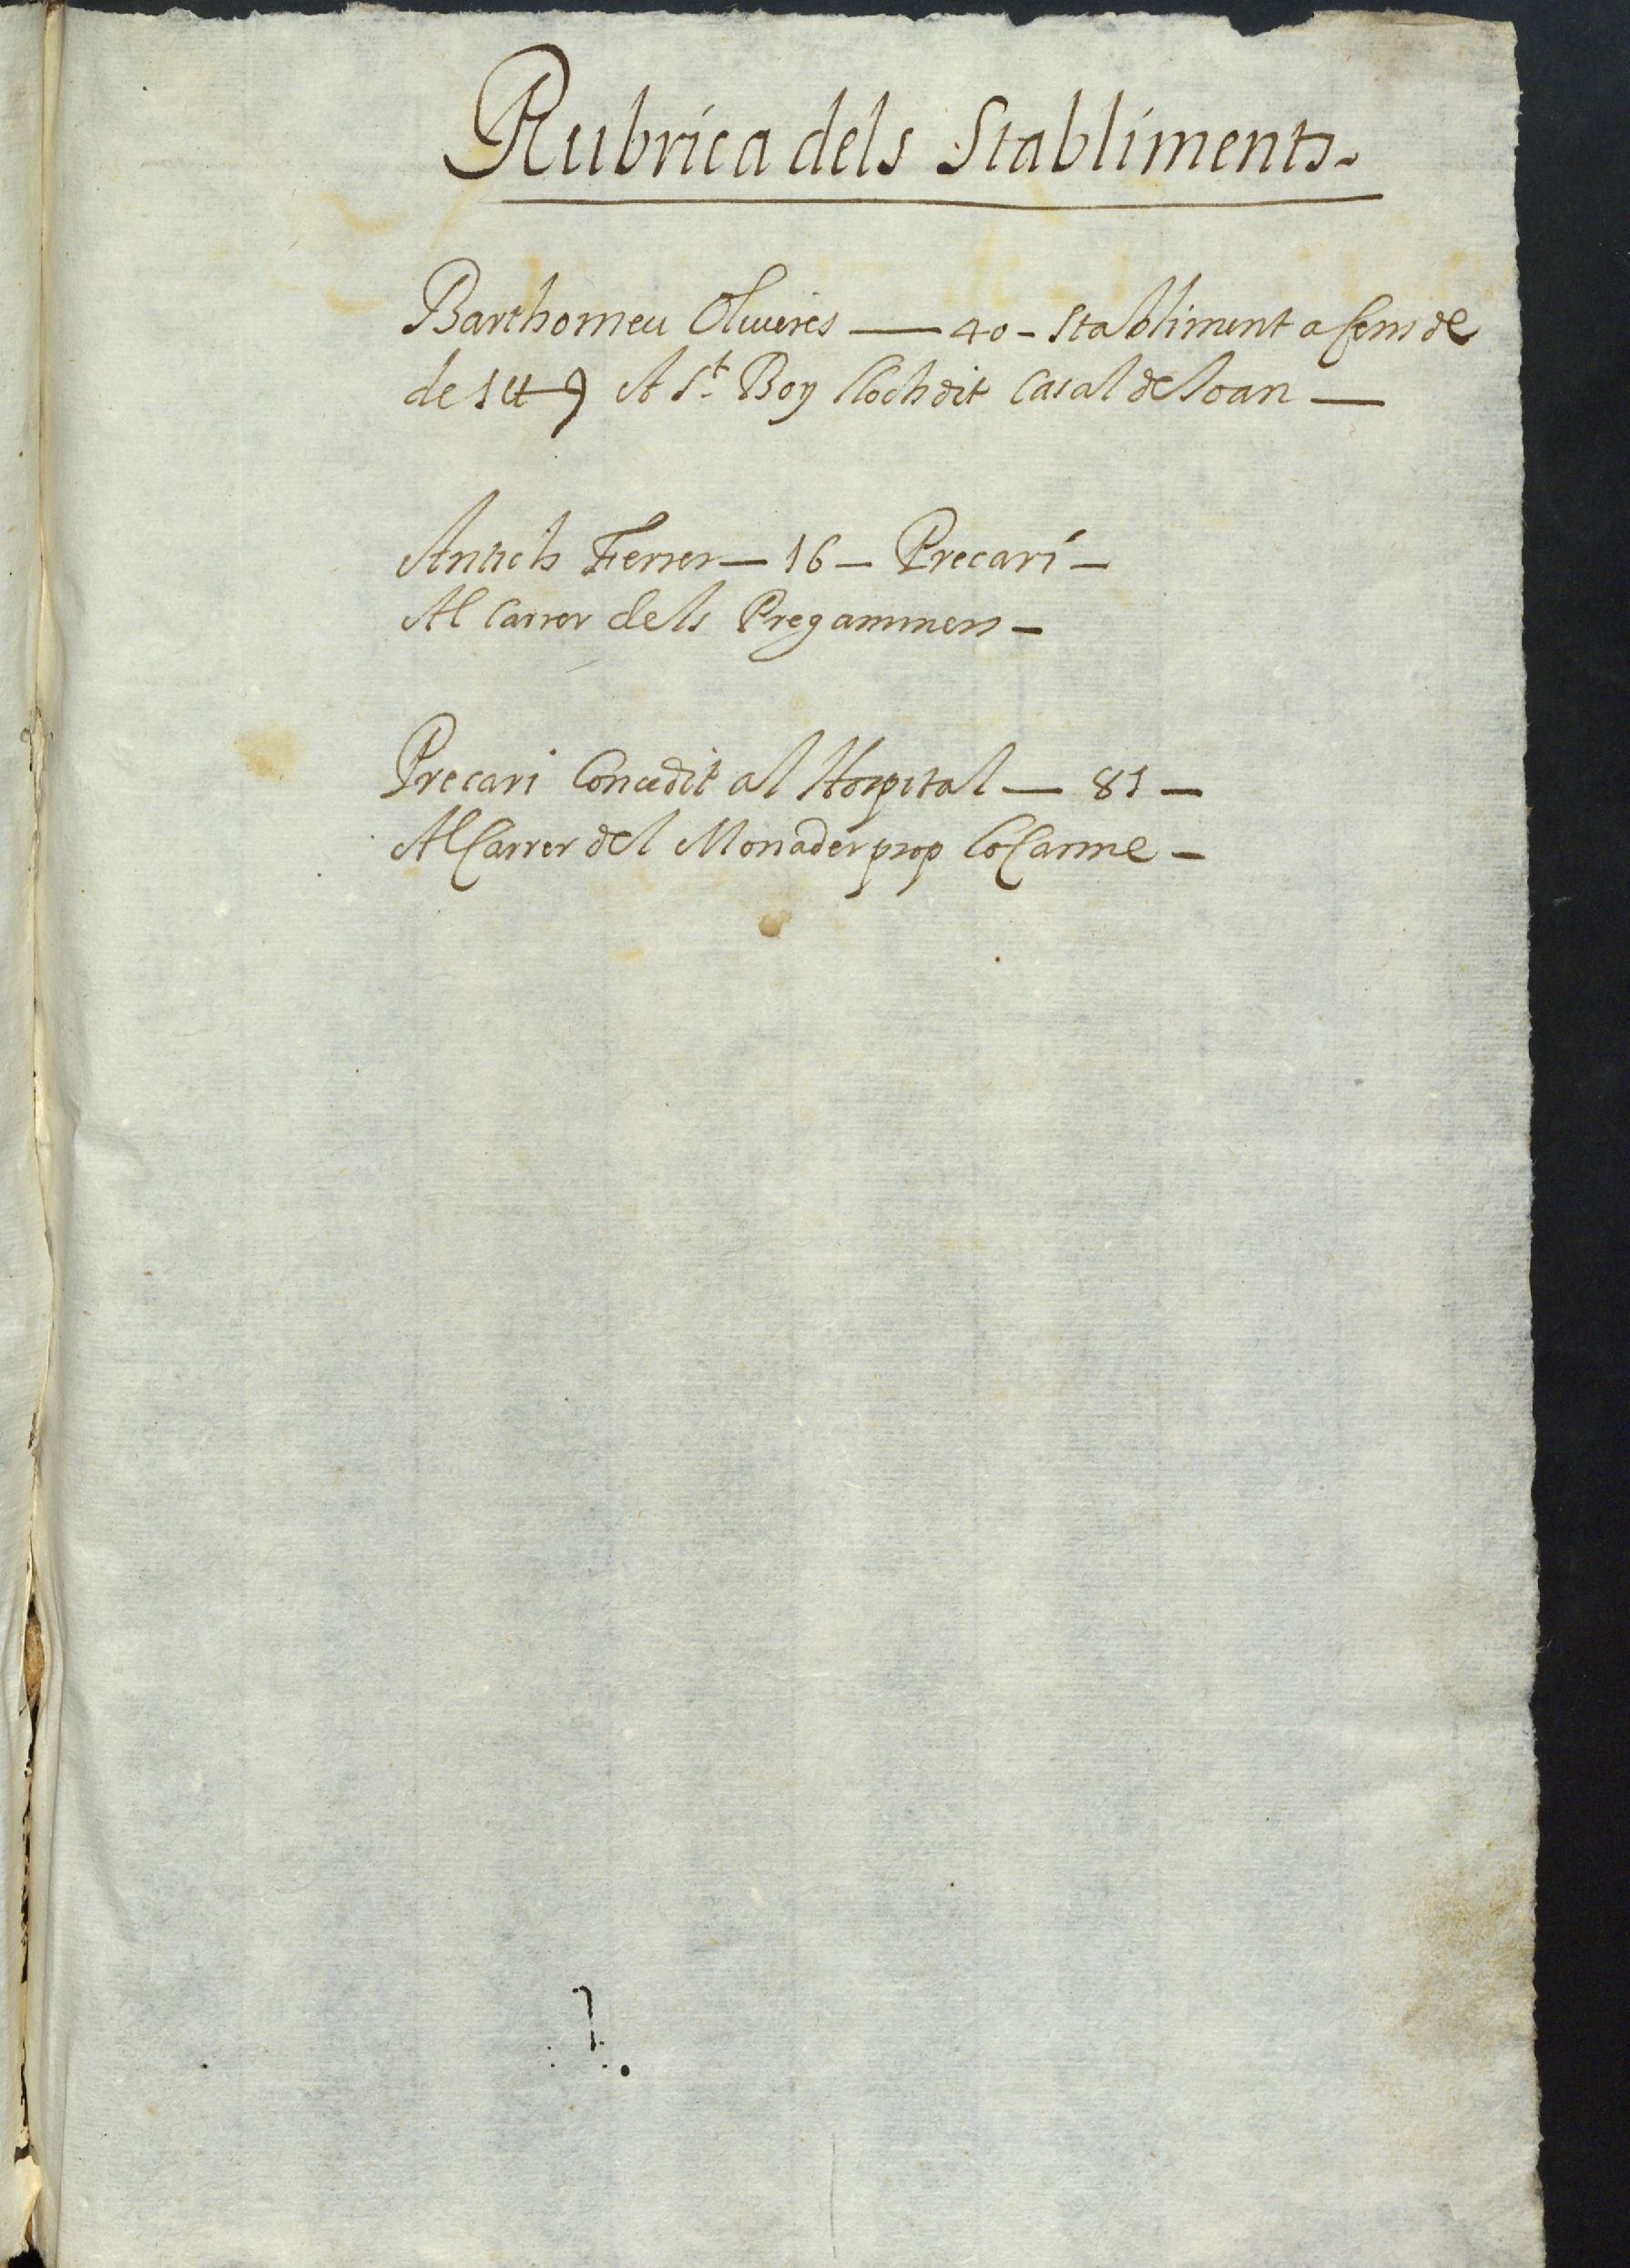 Rubrica dels Stabliments.
Barthomeu Oliueres — 40 - Stabliment a sens de
de 1 ℔ A St. Boy lloch dit Casal de Joan —
Antich Ferrer — 16 — Precari —
Al Carrer dels Pregammers —
Precari Concedit al Hospital — 81 —
Al Carrer del Monader prop lo Carme —